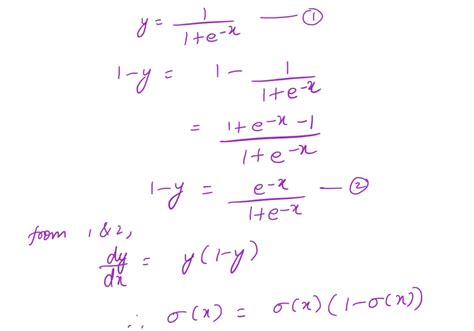 y = 1/(1+e^-x) — ①
1-y = 1 - 1/(1+e^-x)
= (1+e^-x -1)/(1+e^-x)
1-y = e^-x/(1+e^-x) — ②
from 1 & 2,
dy/dx = y(1-y)
∴ σ(x) = σ(x)(1-σ(x))